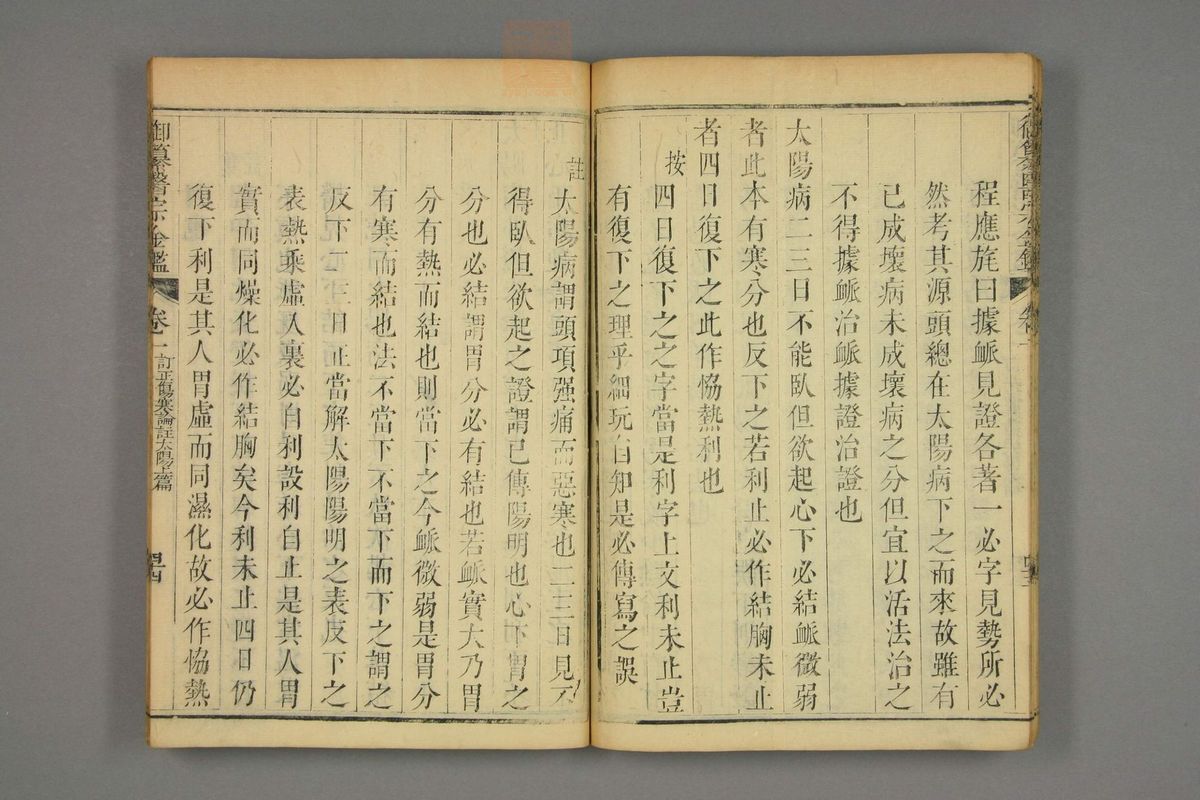 程應旄曰據脈見證各著一必字見勢所必
然考其源頭總在太陽病下之而來故雖有
已成壞病未成壞病之分但宜以活法治之
不得據脈治脈據證治證也
太陽病二三日不能臥但欲起心下必結脈微弱
者此本有寒分也反下之若利止必作結胸未止
者四日復下之此作恊熱利也
按四日復下之之字當是利字上文利未止豈
有復下之理乎細玩自知是必傳寫之誤
註太陽病謂頭項强痛而惡寒也二三日見不
得臥但欲起之證謂已傳陽明也心下胃之
分也必結謂胃分必有結也若脈實大乃胃
分有熱而結也則當下之今脈微弱是胃分
有寒而結也法不當下不當下而下之謂之
反下二三日正當解太陽陽明之表反下之
表熱乘虛入裏必自利設利自止是其人胃
實而同燥化必作結胸矣今利未止四日仍
復下利是其人胃虛而同濕化故必作恊熱
御纂醫宗金鑑 卷一 訂正傷寒論註太陽上篇 四四